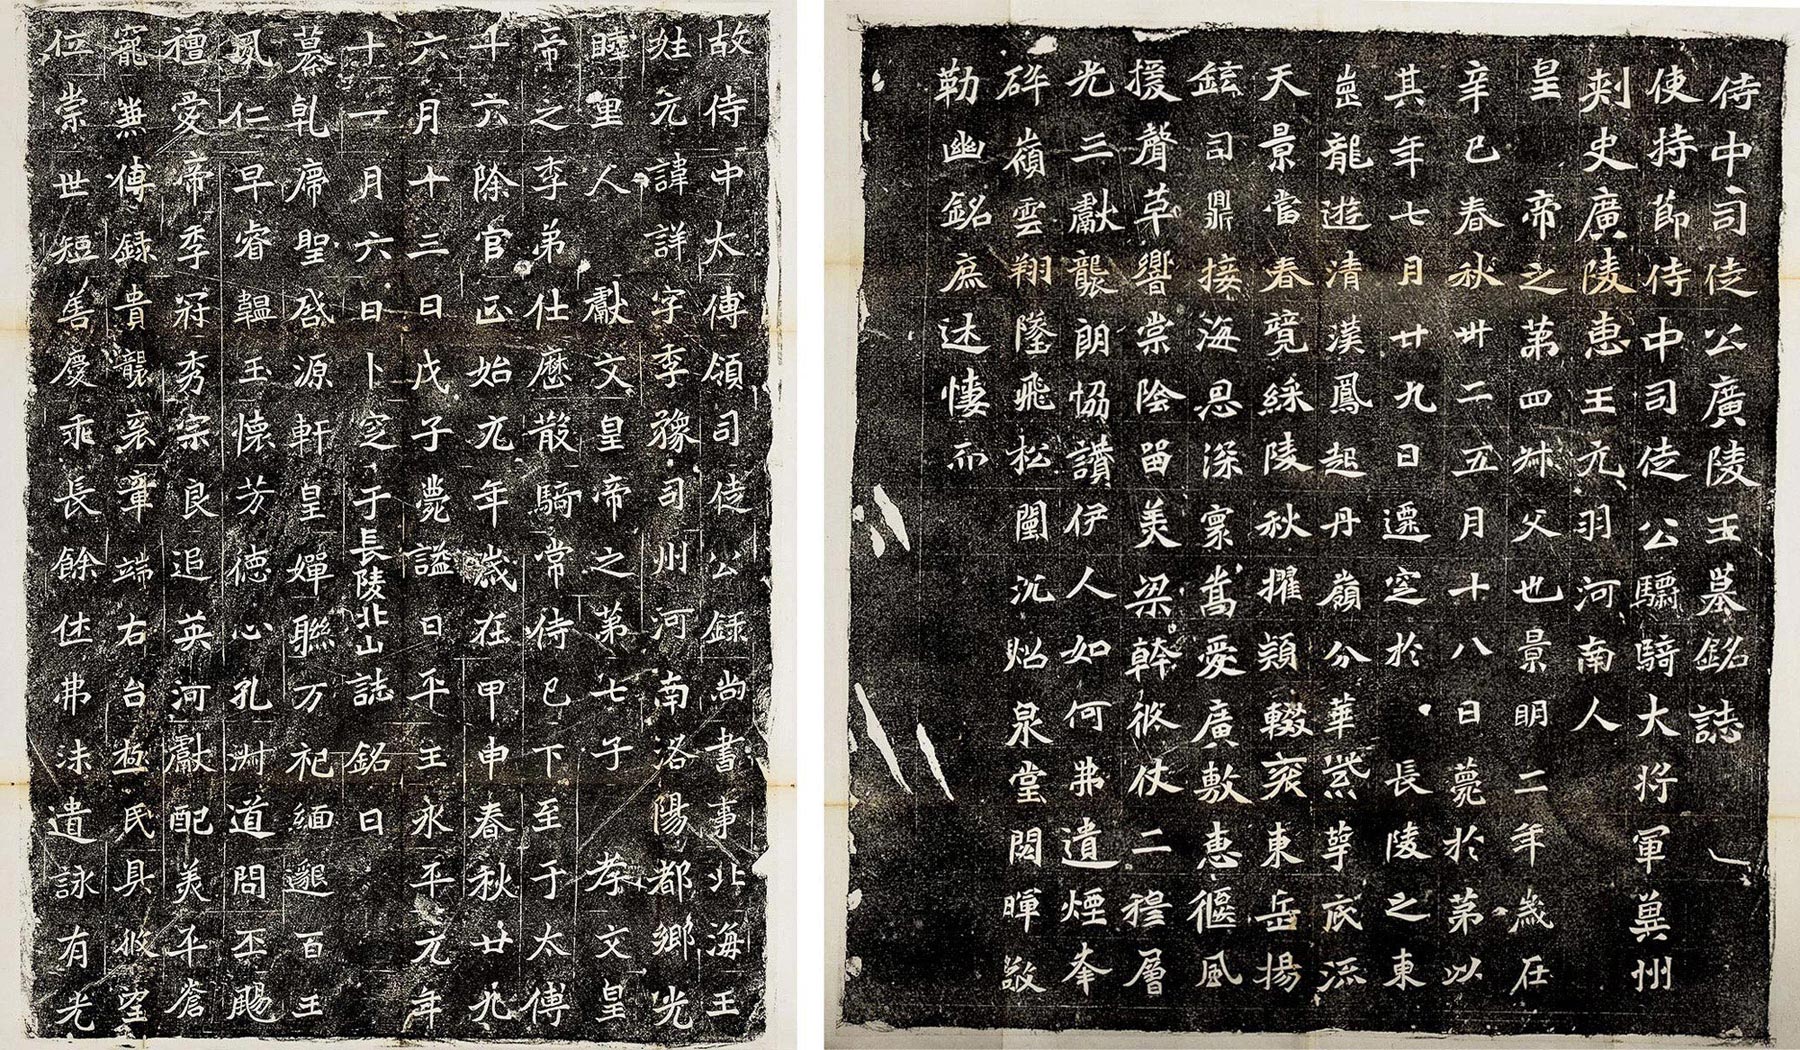 侍中司徒公廣陵王墓銘誌
使持節侍中司徒公驃騎大將軍冀州
刺史廣陵惠王元羽河南人
皇帝之第四叔父也景明二年歲在
辛巳春秋卅二五月十八日薨於第以
其年七月廿九日遷窆於長陵之東
崗龍遊清漢鳳起丹嶺分華紫萼底流
天景當春競綵陵秋擢穎輟衮東岳揚
鉉司鼎接海恩深寰嵩愛廣敷惠偃風
援聲草響棠陰留美梁幹攸仗二穆層
光三獻襲朗協讚伊人如何弗遺煙峯
碎嶺雲翔墜飛松闈沉炤泉堂閟暉敬
勒幽銘庶述悽而
故侍中太傅領司徒公錄尚書事北海王
姓元諱詳字季豫司州河南洛陽都鄉光
睦里人獻文皇帝之第七子孝文皇
帝之季弟仕歷散騎常侍已下至于太傅
十六除官正始元年歲在甲申春秋廿九
六月十三日戊子薨謚曰平王永平元年
十一月六日卜窆于長陵北山誌銘曰
纂乹席聖啓源軒皇嬋聯万祀緬邈百王
夙仁早睿韞玉懷芳德心孔淵道問丕颺
禮愛帝季冠秀宗良追英河獻配美平蒼
寵兼傅錄貴襲袞章端右台極民具攸望
任崇世短善慶乖長餘休弗沬遺詠有光